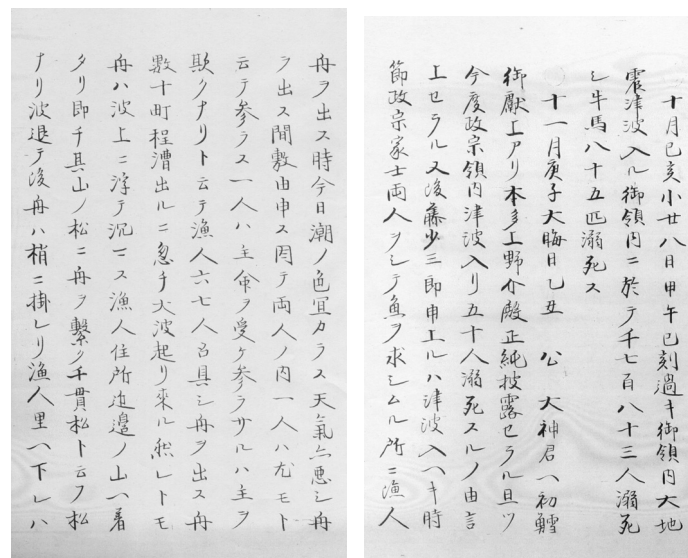 十月己亥小廿八日甲午巳刻過キ御領内大地
震津波入ル御領内ニ於テ千七百八十三人溺死
シ牛馬八十五匹溺死ス
十一月庚子大晦日乙丑 公 大神君ヘ初鱈
御獻上アリ本多上野介殿正純披露セラル且ツ
今度政宗領内津波入リ五十人溺死スルノ由言
上セラル又後藤少三郎申上ルハ津波入ヘキ時
節政宗家士両人ヲシテ魚ヲ求シムル所ニ漁人
舟ヲ出ス時今日潮ノ色冝カラス天氣亦悪シ舟
ヲ出ス間敷由申ス因テ両人ノ内一人ハ尤モト
云テ參ラス一人ハ主命ヲ受ケ參ラサルハ主ヲ
欺クナリト云テ漁人六七人召具シ舟ヲ出ス舟
數十町程漕出ルニ忽チ大波起リ來ル然レトモ
舟ハ波上ニ浮テ沉マス漁人住所近邊ノ山ヘ着
タリ即チ其山ノ松ニ舟ヲ繋ク千貫松ト云フ松
ナリ波退テ後舟ハ梢ニ掛レリ漁人里ヘ下レハ